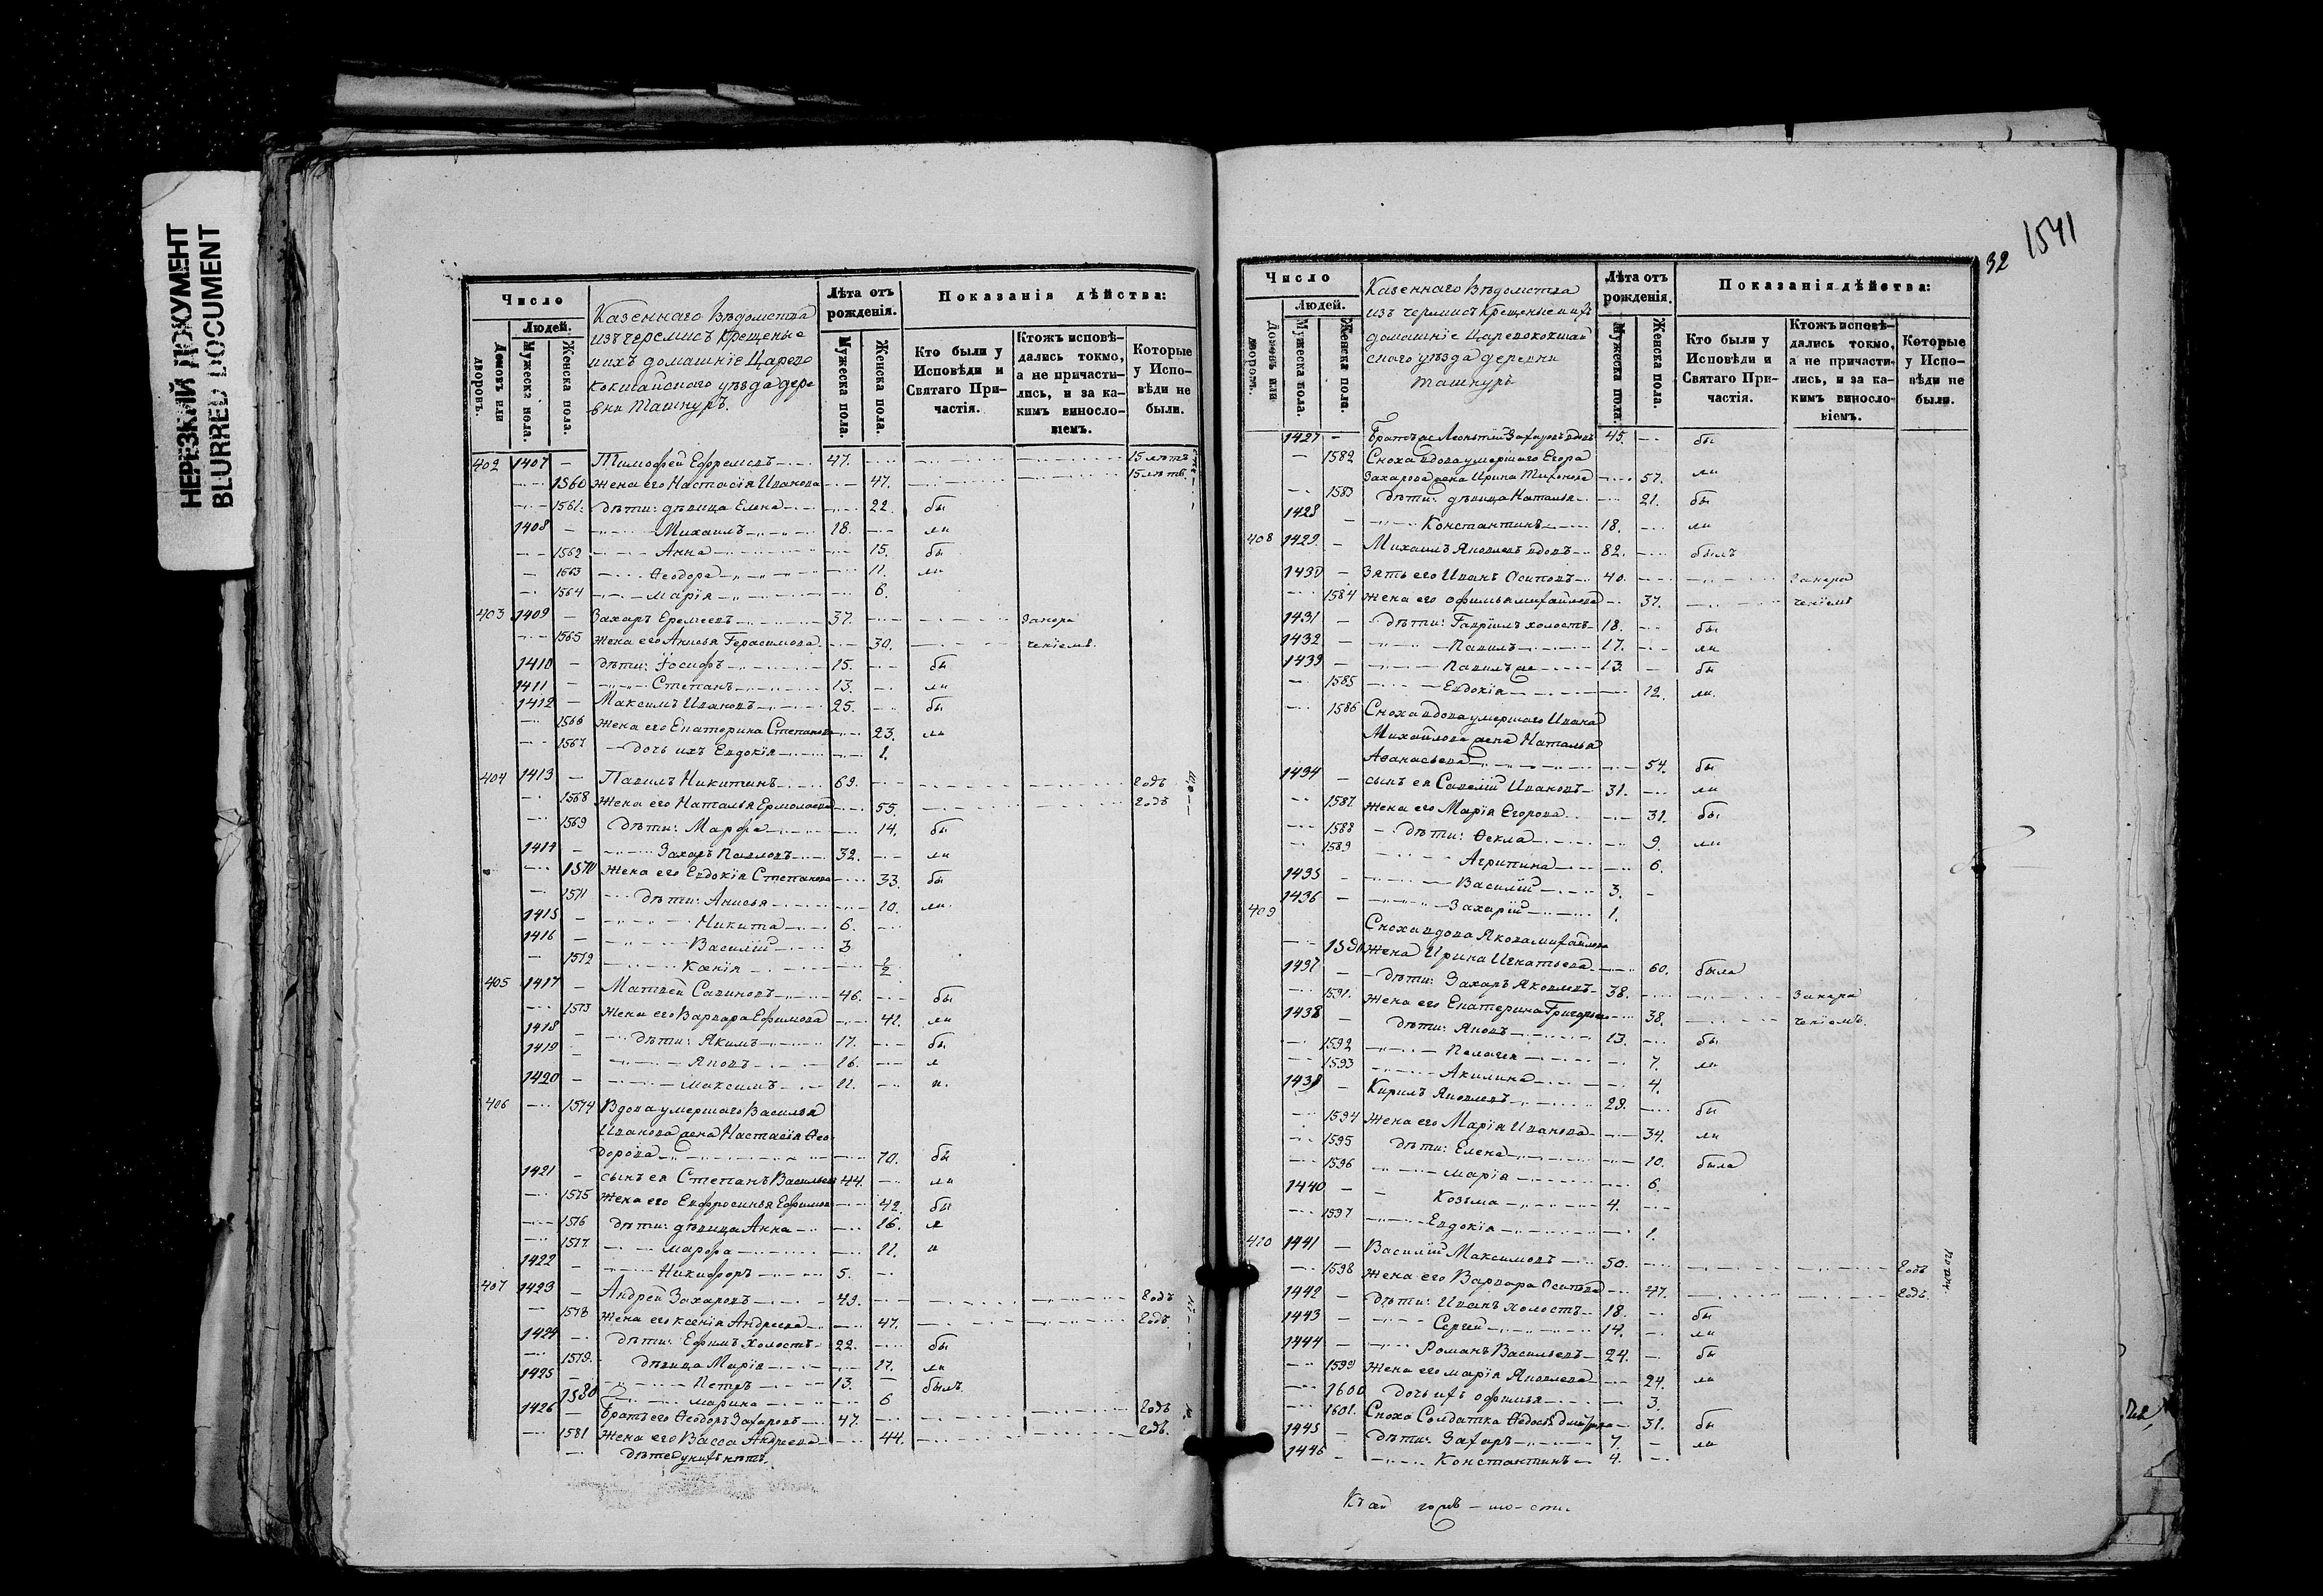 НЕРЕЗКИЙ ДОКУМЕНТ
BLURRED DOCUMENT
Число
Людей.
Домовъ или дворовъ.
Мужеска пола.
Женска пола.
Казеннаго Вѣдомства
изъ черемисъ крещеные
ихъ домашніе Царево
кокшайскаго уѣзда дере
вни Ташнуръ.
Лѣта отъ рожденія.
Мужеска пола.
Женска пола.
Показанія дѣйства:
Кто были у Исповѣди и Святаго Причастія.
Ктожъ исповѣдались токмо, а не причастились, и за какимъ винословіемъ.
Которые у Исповѣди не были.
402 1407 — Тимофей Ефремовъ 47. 15 лѣтъ
1560 жена его Настасія Иванова 47. 15 лѣтъ
1561. дѣти: дѣвица Елена 22. бы
1408 — Михаилъ 18. ли
1562 Анна 15. бы
1563 Ѳеодора 11. ли
1564 Марія 6.
403 1409 — Захаръ Еремеевъ 37. Занера
1565 жена его Анисья Герасимова 30. ченіемъ
1410 — дѣти: Іосифъ 15. бы
1411 — Степанъ 13. ли
1412 — Максимъ Ивановъ 25. бы
1566 жена его Екатерина Степанова 23. ли
1567 дочь ихъ Евдокія 1.
404 1413 — Павилъ Никитинъ 69. годъ
1568 жена его Наталья Ермолаева 55. годъ
1569 дѣти: Марфа 14. бы
1414 — Захаръ Павловъ 32. ли
1570 жена его Евдокія Степанова 33. бы
1571 дѣти: Анисья 10. ли
1415 — Никита 6.
1416 — Василій 3
1572 Ксенія 1/2
405 1417 — Матвей Савиновъ 46. бы
1573 жена его Варвара Ефимова 41. ли
1418 — дѣти: Якимъ 17. бы
1419 — Яковъ 16. л
1420 — Максимъ 11. и.
406 1574 Вдова умершаго Василья
Иванова жена Настасія Ѳео
дорова 70. бы
1421 — сынъ ея Степанъ Васильевъ 44. ли
1575 жена его Евфросинья Ефимова 42. бы
1576 дѣти: дѣвица Анна 16. л
1577 Марфа 11. и
1422 — Никифоръ 5.
407 1423 — Андрей Захаровъ 49. годъ
1578 жена его Ксенія Андреева 47. годъ
1424 — дѣти: Ефимъ холостъ 22. бы
1579. дѣвица Марія 17. ли
1425 — Петръ 13. былъ
1580 Марина 6
1426 — братъ его Ѳеодоръ Захаровъ 47. годъ
1581 жена его Васса Андреева 44. годъ.
дѣтей у нихъ нѣтъ.
32
1541
Число
Людей.
Домовъ или дворовъ.
Мужеска пола.
Женска пола.
Казеннаго Вѣдомства
изъ чермисъ крещеные ихъ
домашніе Царевококшай
скаго уѣзда деревни
Ташнуръ
Лѣта отъ рожденія.
Мужеска пола.
Женска пола.
Показанія дѣйства:
Кто были у Исповѣди и Святаго Причастія.
Ктожъ исповѣдались токмо, а не причастились, и за какимъ винословіемъ.
Которые у Исповѣди не были.
1427 — Братъ же Леонтій Захаровъ вдовъ 45. бы
1582 Сноха вдова умершаго Егора
Захарова жена Ирина Тихонова 57. ли
1583 дѣти: дѣвица Наталья 21. бы
1428 — Константинъ 18. ли
408 1429. — Михаилъ Яковлевъ вдовъ 82. былъ
1430 — Зять его Иванъ Осиповъ 40. Занера
1584 жена его Офимья Михайлова 37. ченіемъ
1431 — дѣти: Гавріилъ холостъ 18. бы
1432 — Павилъ 17. ли
1433 — Павилъ же 13. бы
1585 Евдокія 12. ли.
1586 Сноха вдова умершаго Ивана
Михайлова жена Наталья
Аѳанасьева 54. бы
1434 — сынъ ея Савелій Ивановъ 31. ли
1587. жена его Марія Егорова 31. бы
1588 дѣти: Ѳекла 9. ли
1589 Агрипина 6.
1435 — Василій 3.
1436 — Захарій 1.
409 Сноха вдова Якова Михайлова
1590 жена Ирина Игнатьева 60. была
1437 — дѣти: Захаръ Яковлевъ 38. Занера
1591. жена его Екатерина Григорьева 38. ченіемъ.
1438 — дѣти: Яковъ 13. бы
1592 Пелагея 7. ли
1593 Акилина 4.
1439 — Кирилъ Яковлевъ 29. бы
1594 жена его Марія Иванова 34. ли
1595 дѣти: Елена 10. была
1596 Марія 6.
1440 — Козьма 4.
1597 Евдокія 1.
410 1441 — Василій Максимовъ 50. годъ
1598 жена его Варвара Осипова 47. годъ.
1442 — дѣти: Иванъ холостъ 18. бы
1443 — Сергей 14. ли
1444 — Романъ Васильевъ 24. бы
1599 жена его Марія Яковлева 24. ли
1600 дочь ихъ Офимья 3.
1601. Сноха Солдатка Ѳедосья 31. бы
1445 — дѣти: Захаръ 7. ли
1446 — Константинъ 4.